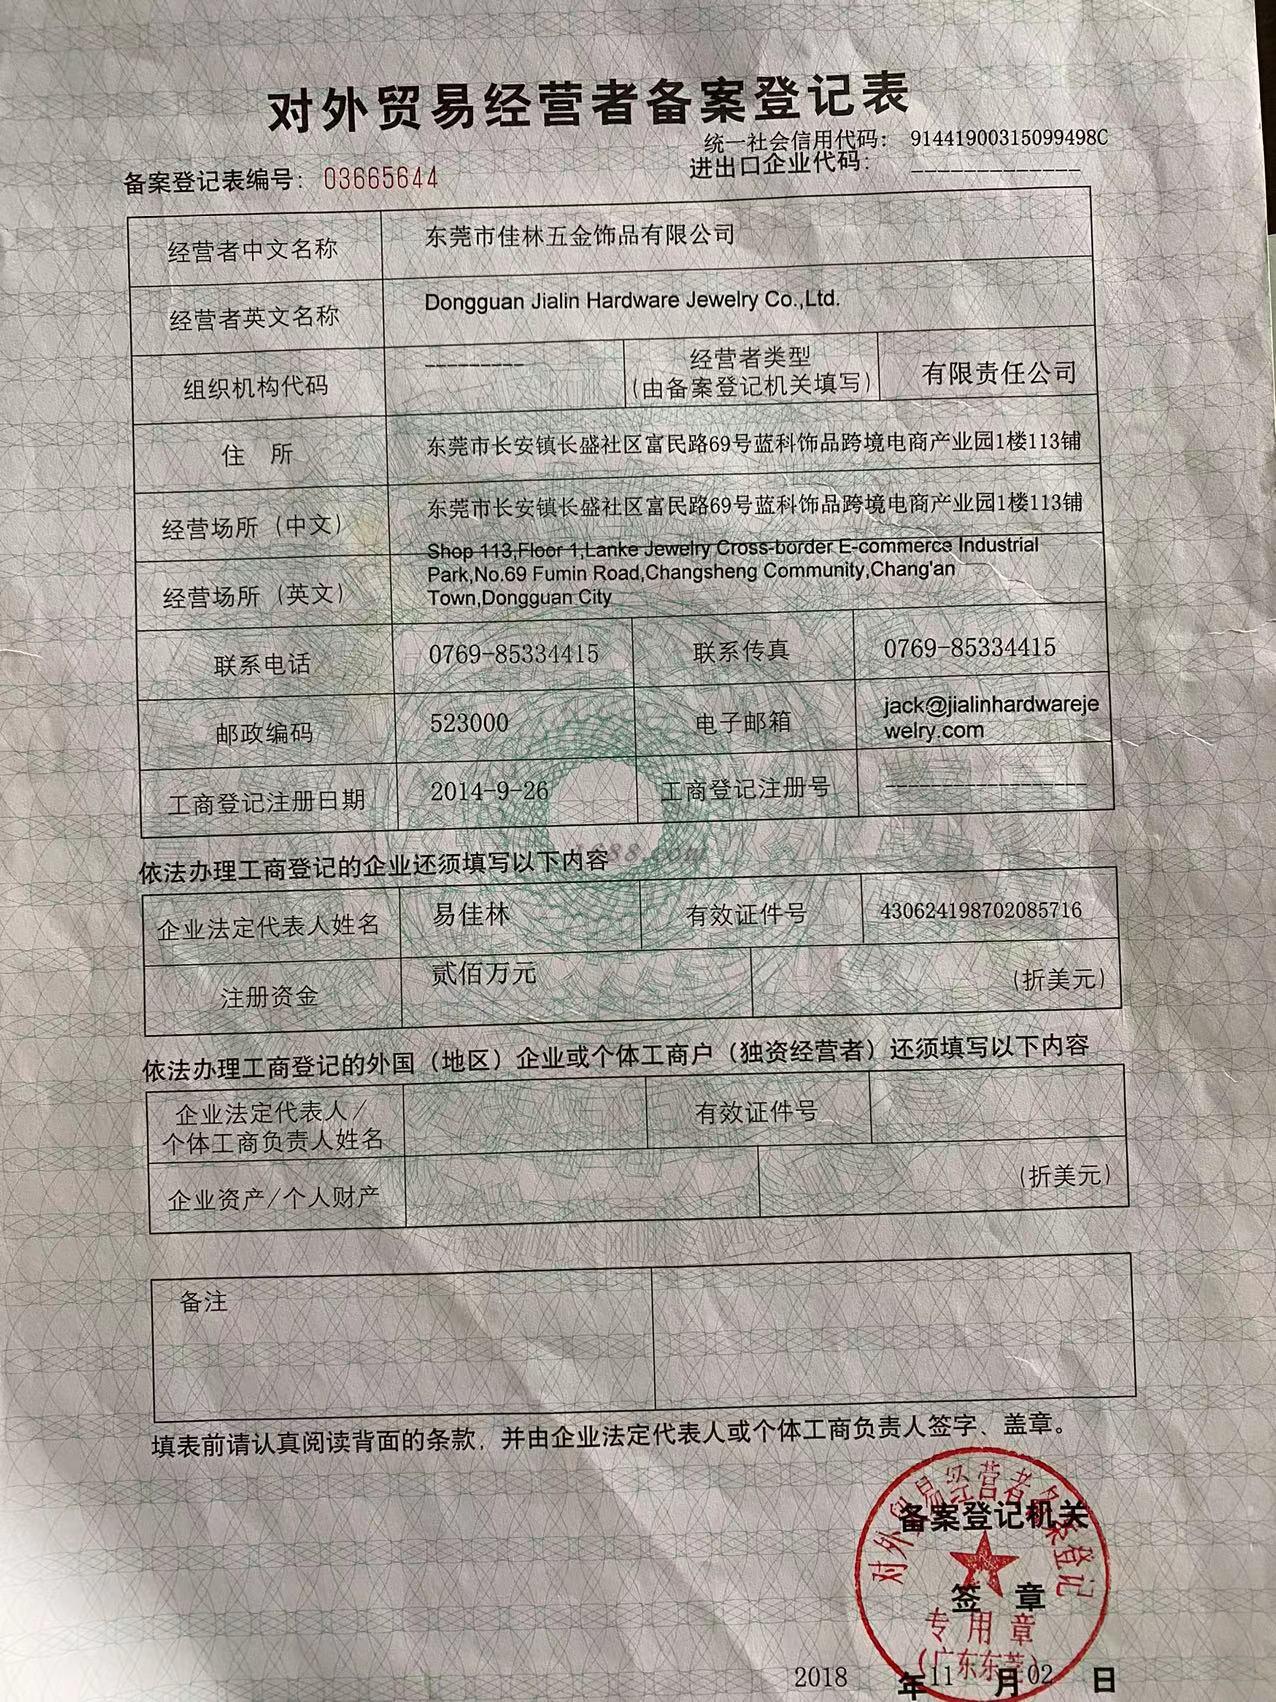 对外贸易经营者备案登记表
统一社会信用代码： 91441900315099498C
备案登记表编号：03665644
进出口企业代码：--------------
经营者中文名称 东莞市佳林五金饰品有限公司
经营者英文名称 Dongguan Jialin Hardware Jewelry Co.,Ltd.
组织机构代码 ---------
经营者类型
(由备案登记机关填写)
有限责任公司
住 所 东莞市长安镇长盛社区富民路69号蓝科饰品跨境电商产业园1楼113铺
经营场所（中文） 东莞市长安镇长盛社区富民路69号蓝科饰品跨境电商产业园1楼113铺
经营场所（英文）
Shop 113,Floor 1,Lanke Jewelry Cross-border E-commerce Industrial
Park,No.69 Fumin Road,Changsheng Community,Chang'an
Town,Dongguan City
联系电话 0769-85334415 联系传真 0769-85334415
邮政编码 523000 电子邮箱
jack@jialinhardwareje
welry.com
工商登记注册日期 2014-9-26 工商登记注册号 ------------------
1688.com
依法办理工商登记的企业还须填写以下内容
企业法定代表人姓名 易佳林 有效证件号 430624198702085716
注册资金 贰佰万元 (折美元)
依法办理工商登记的外国（地区）企业或个体工商户（独资经营者）还须填写以下内容
企业法定代表人/
个体工商负责人姓名
有效证件号
企业资产/个人财产 (折美元)
备注
填表前请认真阅读背面的条款，并由企业法定代表人或个体工商负责人签字、盖章。
对外贸易经营者备案登记
备案登记机关
签 章
专用章
(广东东莞)
2018 年 11 月 02 日